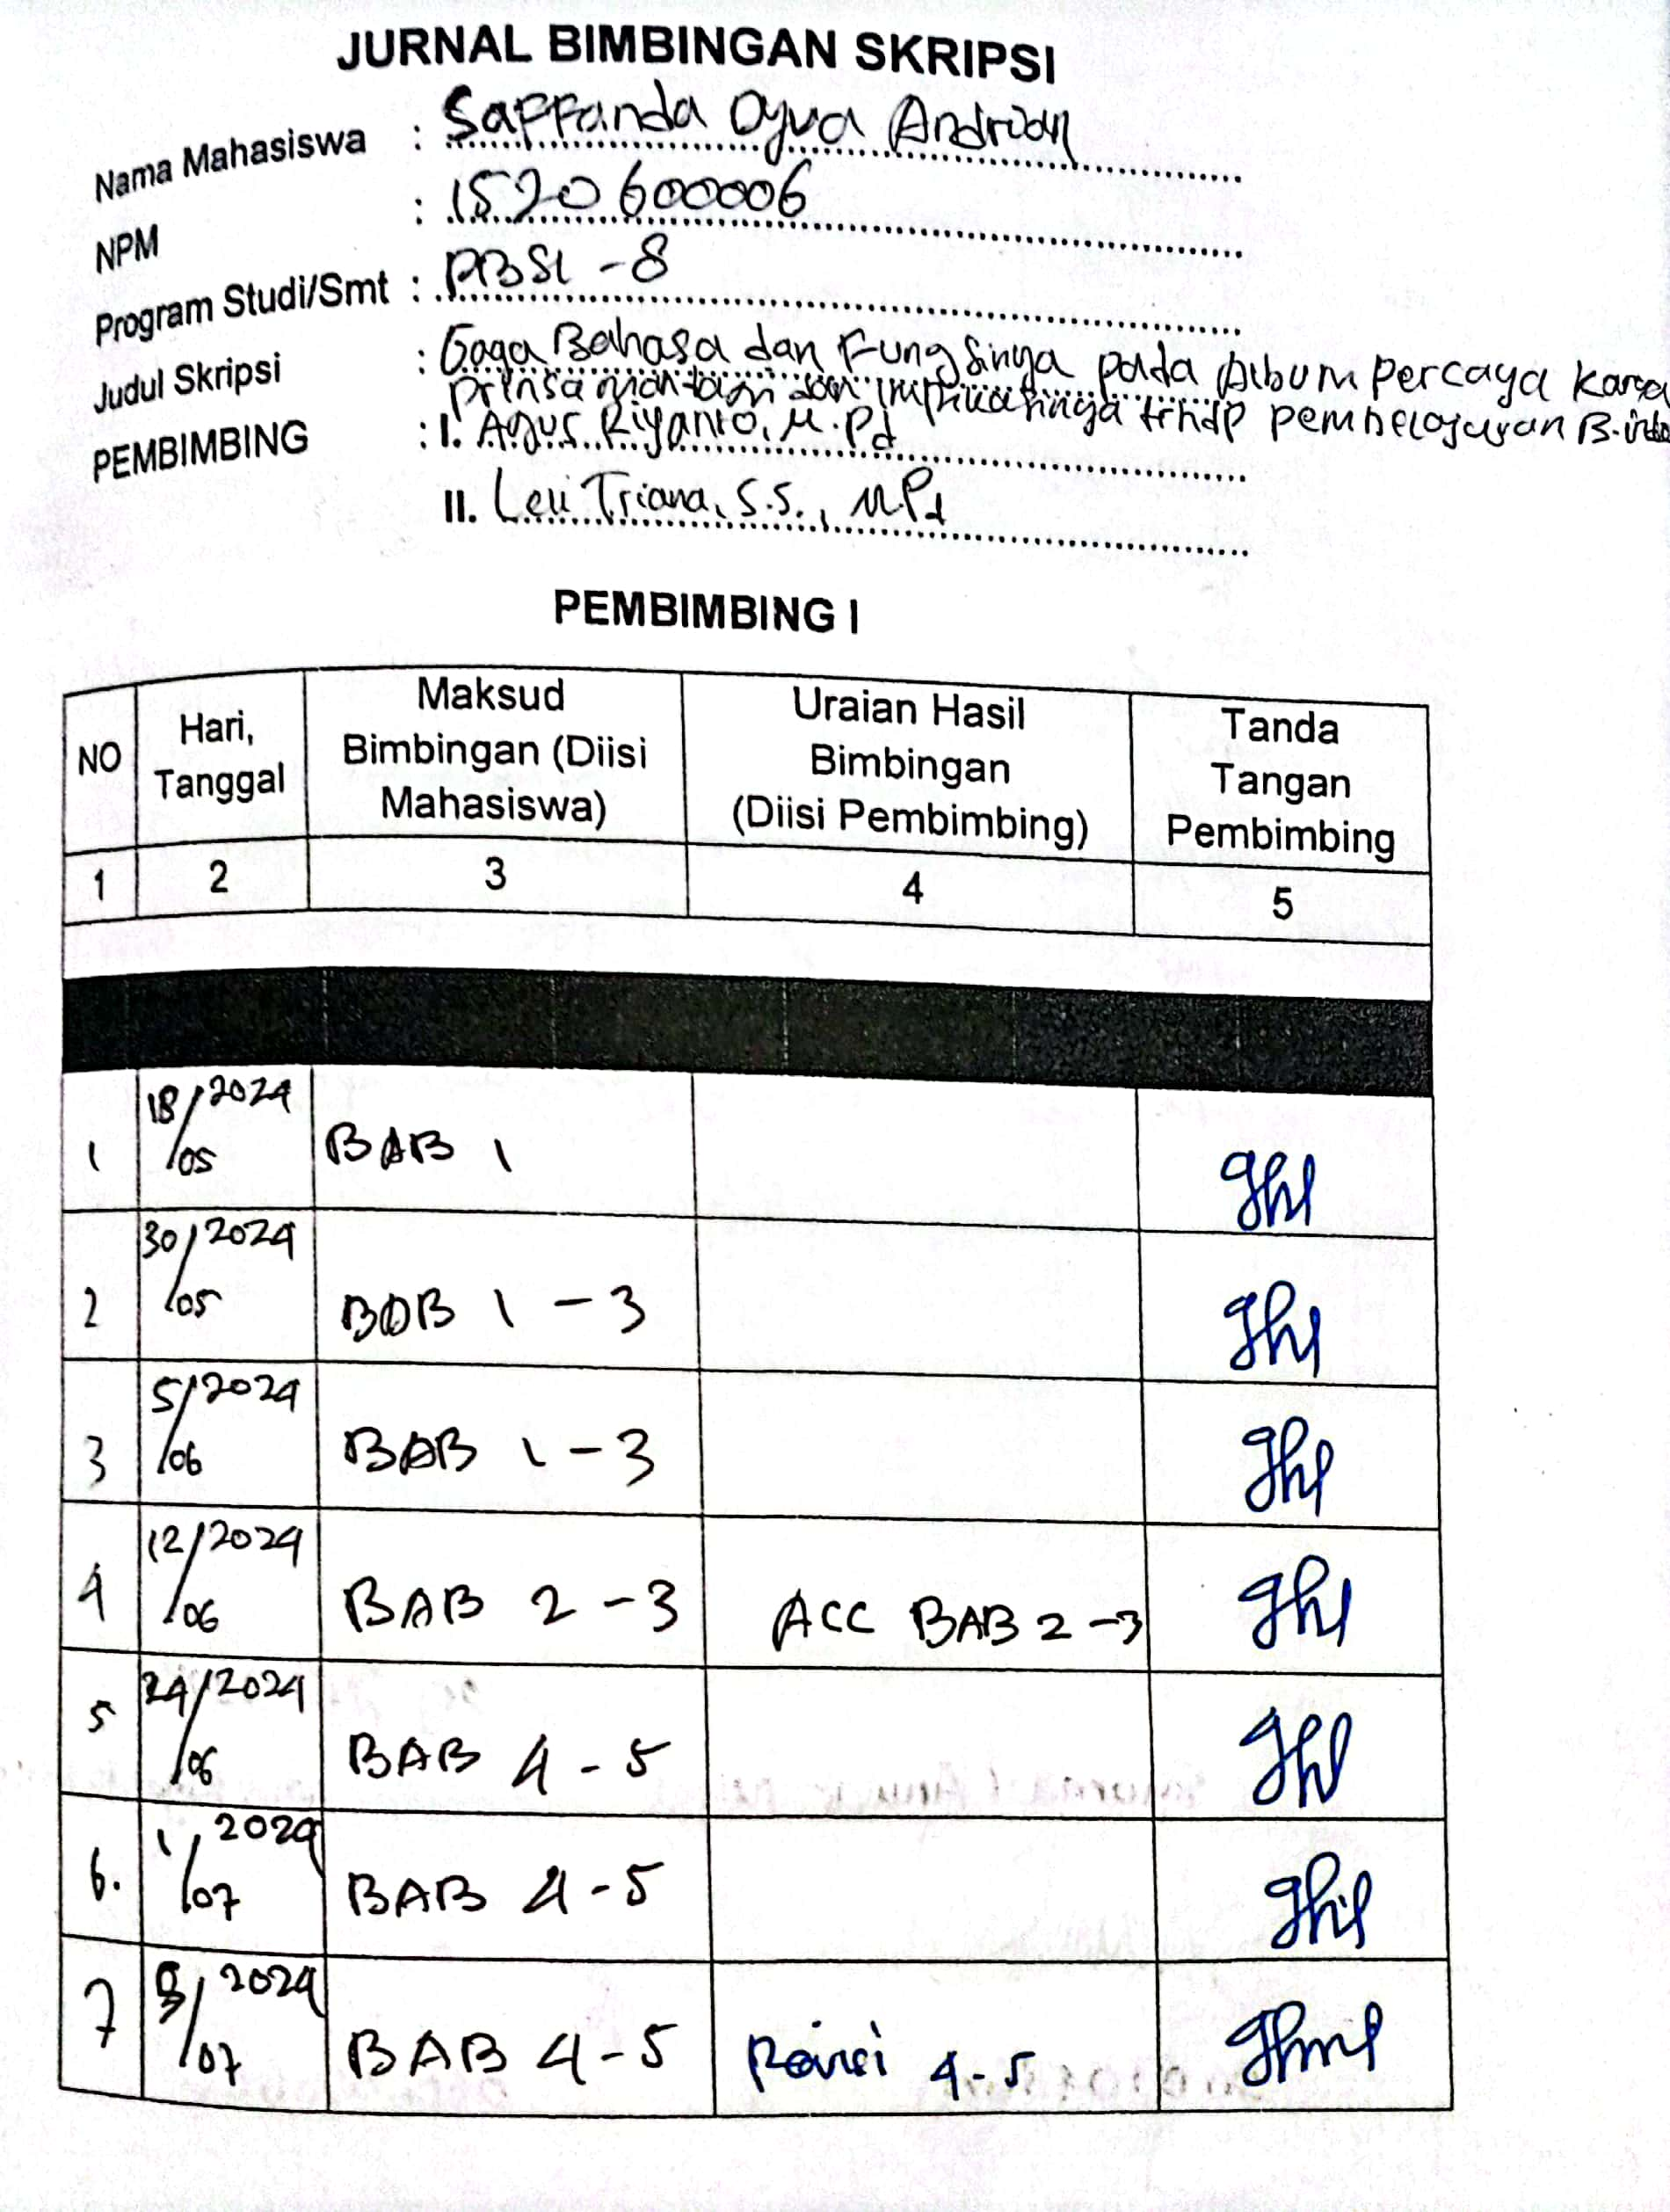 JURNAL BIMBINGAN SKRIPSI
Nama Mahasiswa : Saffanda Ogva Andrian
NPM : 1520600006
Program Studi/Smt : PBSI - 8
Judul Skripsi : Gaya Bahasa dan Fungsinya pada Album Percaya Karya
Prinsa Mandagi dan implikasinya trhdp pembelajaran B.indo
PEMBIMBING : I. Agus Riyanto, M.Pd
II. Leli Triana, S.S., M.Pd
PEMBIMBING I
NO Hari, Tanggal Maksud Bimbingan (Diisi Mahasiswa) Uraian Hasil Bimbingan (Diisi Pembimbing) Tanda Tangan Pembimbing
1 2 3 4 5
1 18/05 2024 BAB 1
2 30/05 2024 BAB 1 - 3
3 5/06 2024 BAB 1 - 3
4 12/06 2024 BAB 2 - 3 ACC BAB 2 - 3
5 24/06 2024 BAB 4 - 5
6. 1/07 2024 BAB 4 - 5
7 /07 2024 BAB 4 - 5 Revisi 4 - 5